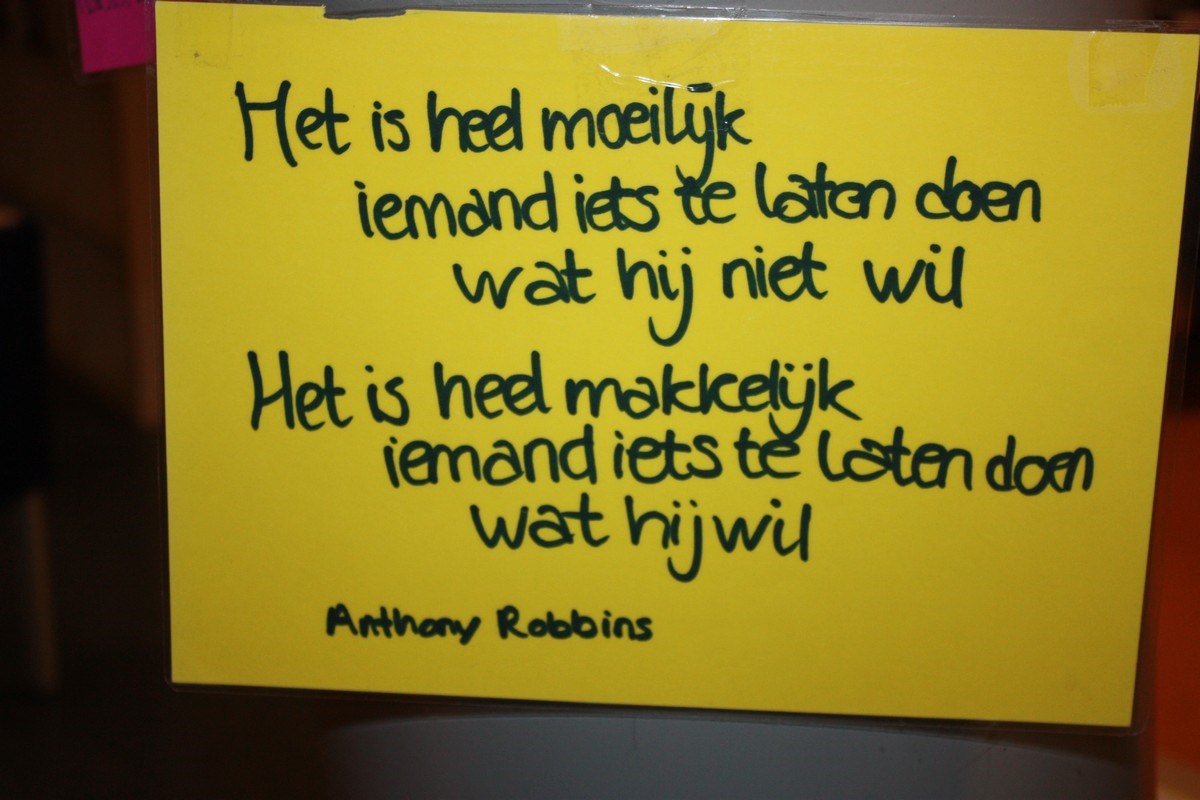 Het is heel moeilijk
iemand iets te laten doen
wat hij niet wil
Het is heel makkelijk
iemand iets te laten doen
wat hij wil
Anthony Robbins